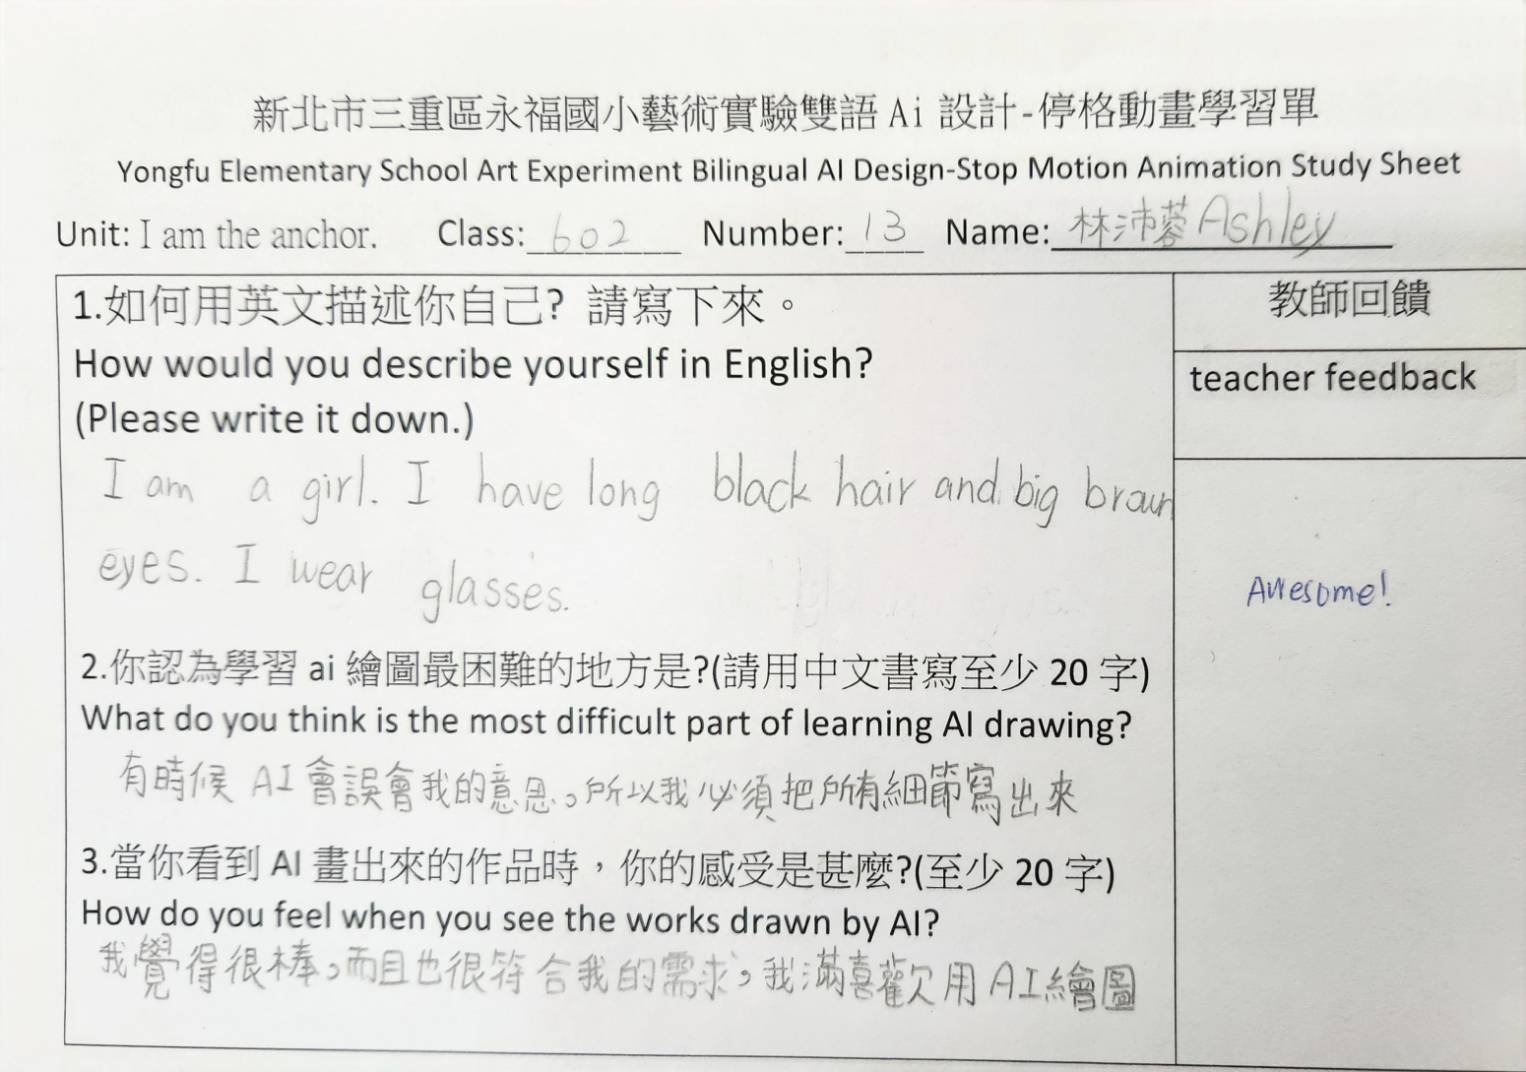 新北市三重區永福國小藝術實驗雙語 Ai 設計-停格動畫學習單
Yongfu Elementary School Art Experiment Bilingual AI Design-Stop Motion Animation Study Sheet
Unit: I am the anchor. Class: 602 Number: 13 Name: 林沛蓉 Ashley
1.如何用英文描述你自己? 請寫下來。
How would you describe yourself in English?
(Please write it down.)
I am a girl. I have long black hair and big braun
eyes. I wear glasses.
教師回饋
teacher feedback
Awesome!
2.你認為學習 ai 繪圖最困難的地方是?(請用中文書寫至少 20 字)
What do you think is the most difficult part of learning AI drawing?
有時候 AI 會誤會我的意思。所以我必須把所有細節寫出來
3.當你看到 AI 畫出來的作品時，你的感受是甚麼?(至少 20 字)
How do you feel when you see the works drawn by AI?
我覺得很棒,而且也很符合我的需求,我滿喜歡用AI繪圖